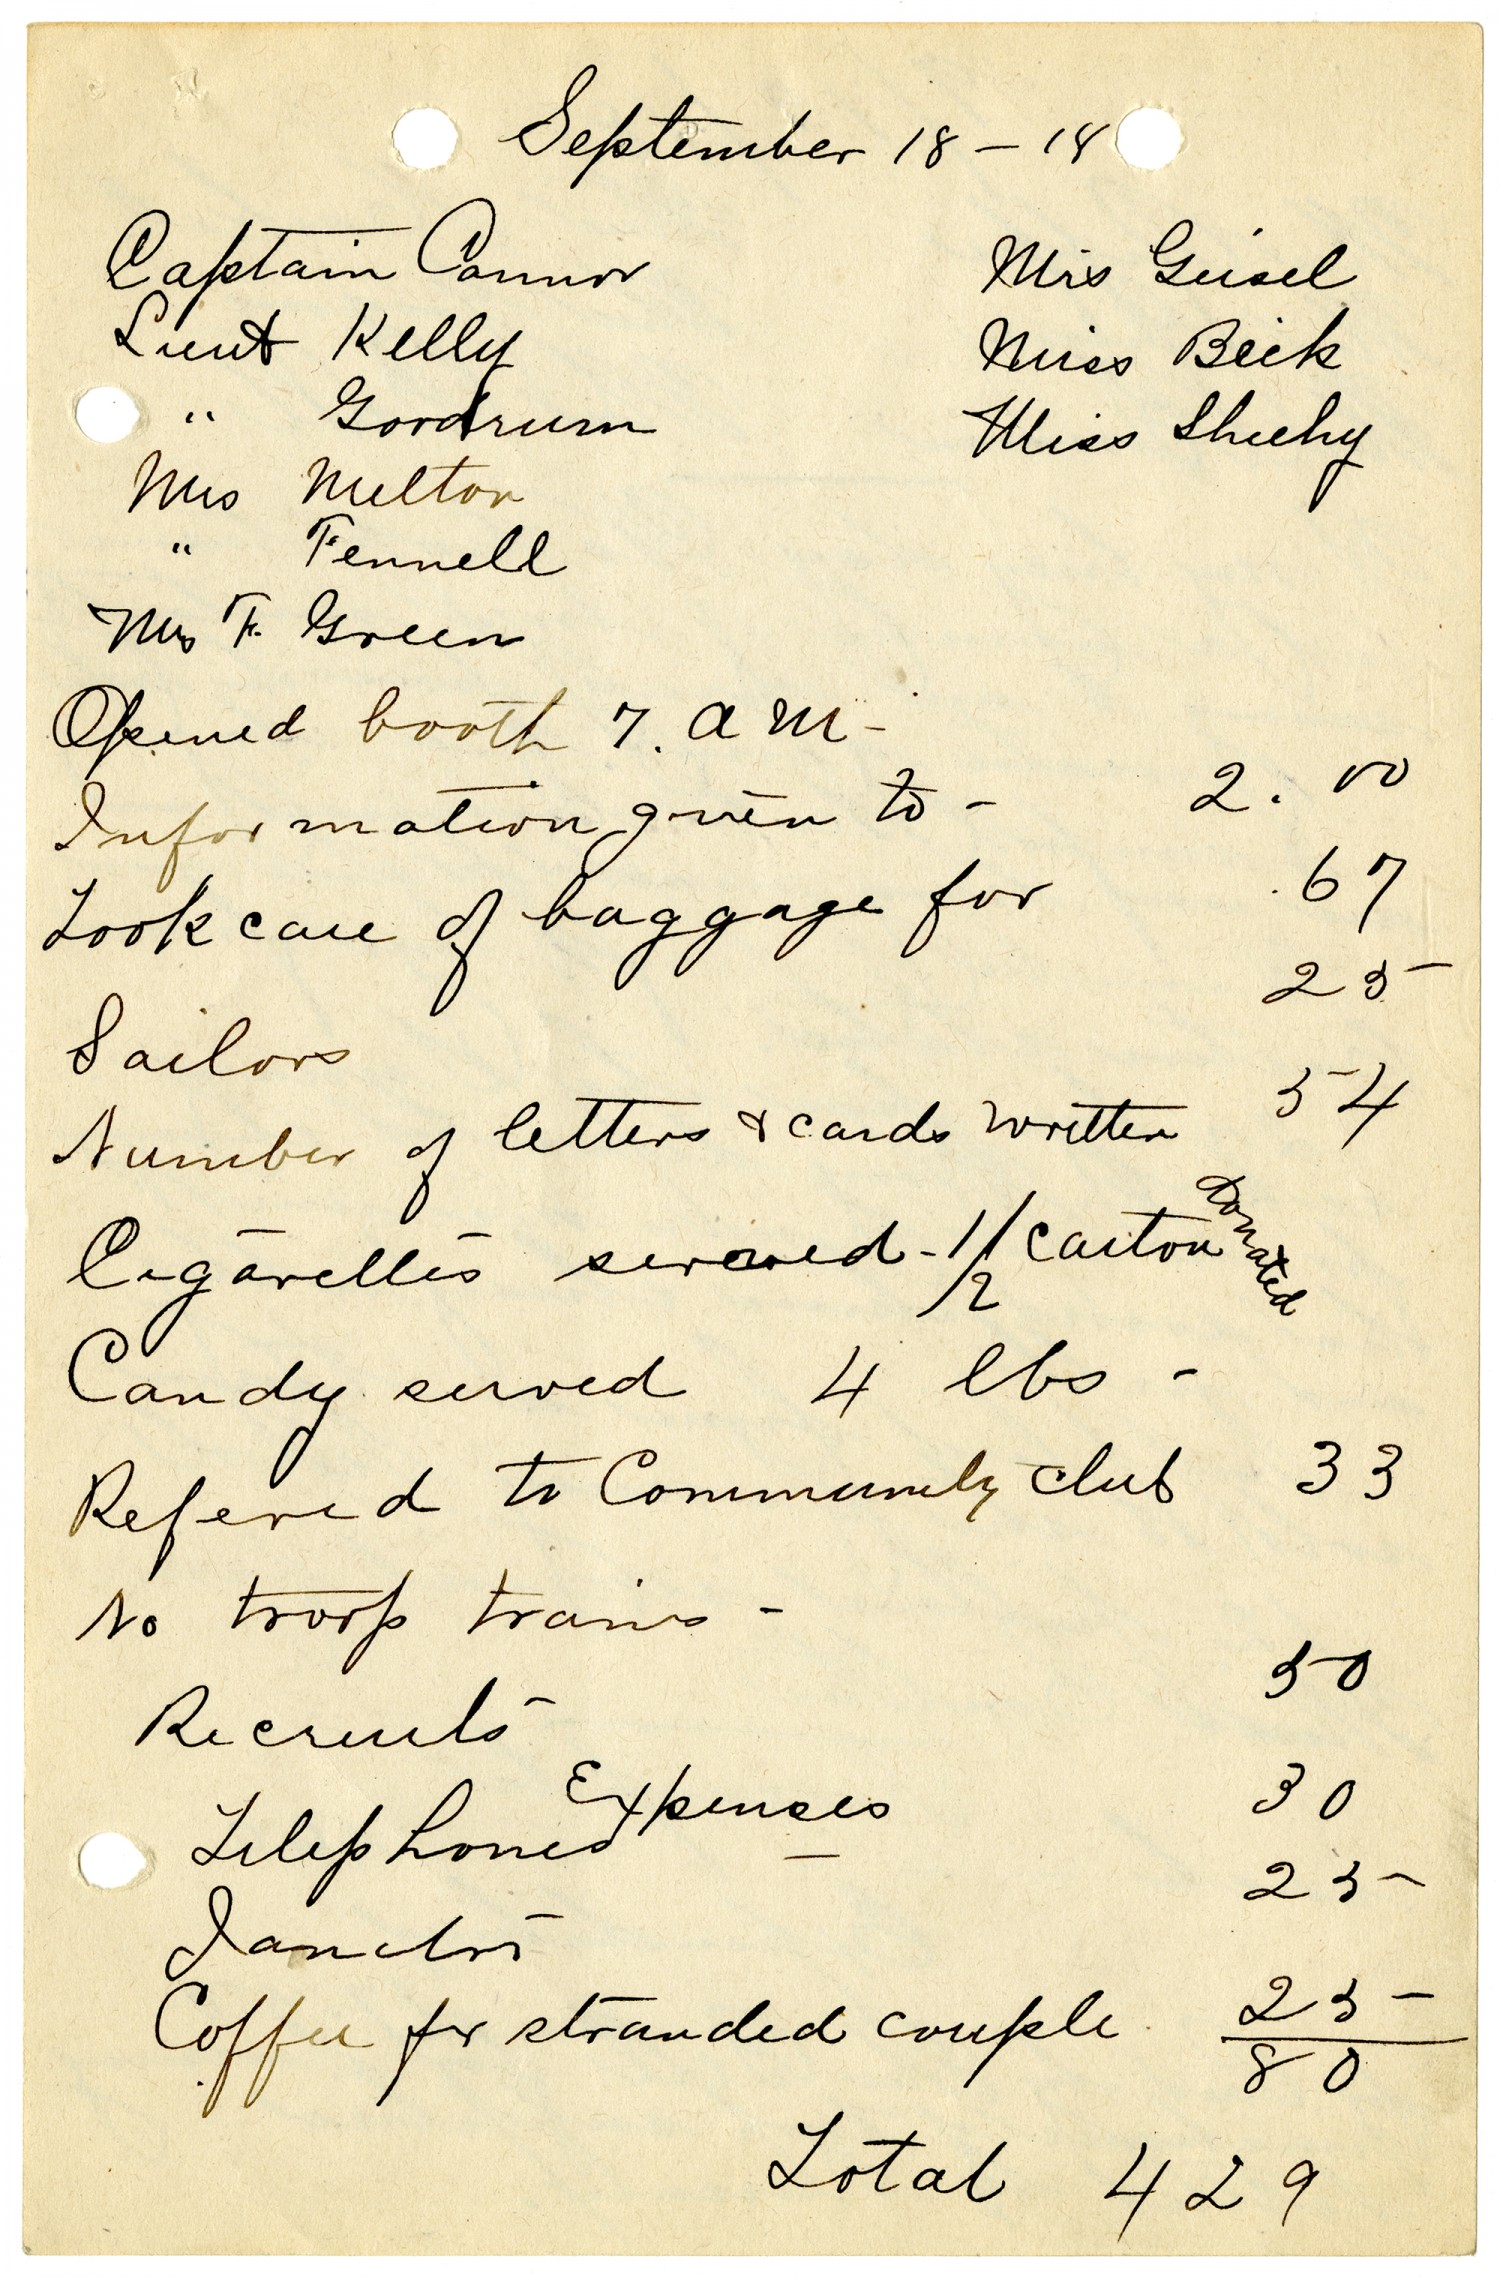 September 18 - 18
Captain Connor
Mrs Geisel
Lieut Kelly
Miss Beik
" Gordrum
Miss Sheehy
Mrs Melton
" Fennell
Mrs F. Green
Opened booth 7. a m -
Information given to - 2.00
Took care of baggage for .67
Sailors 25
Number of letters & cards written 54
Cigarettes served - 1/2 carton Donated
Candy served 4 lbs -
Refered to Community club 33
No troop trains -
Recruits 50
Expenses
Telephones 30
Janitor 25
Coffee for stranded couple 25
80
Total 429